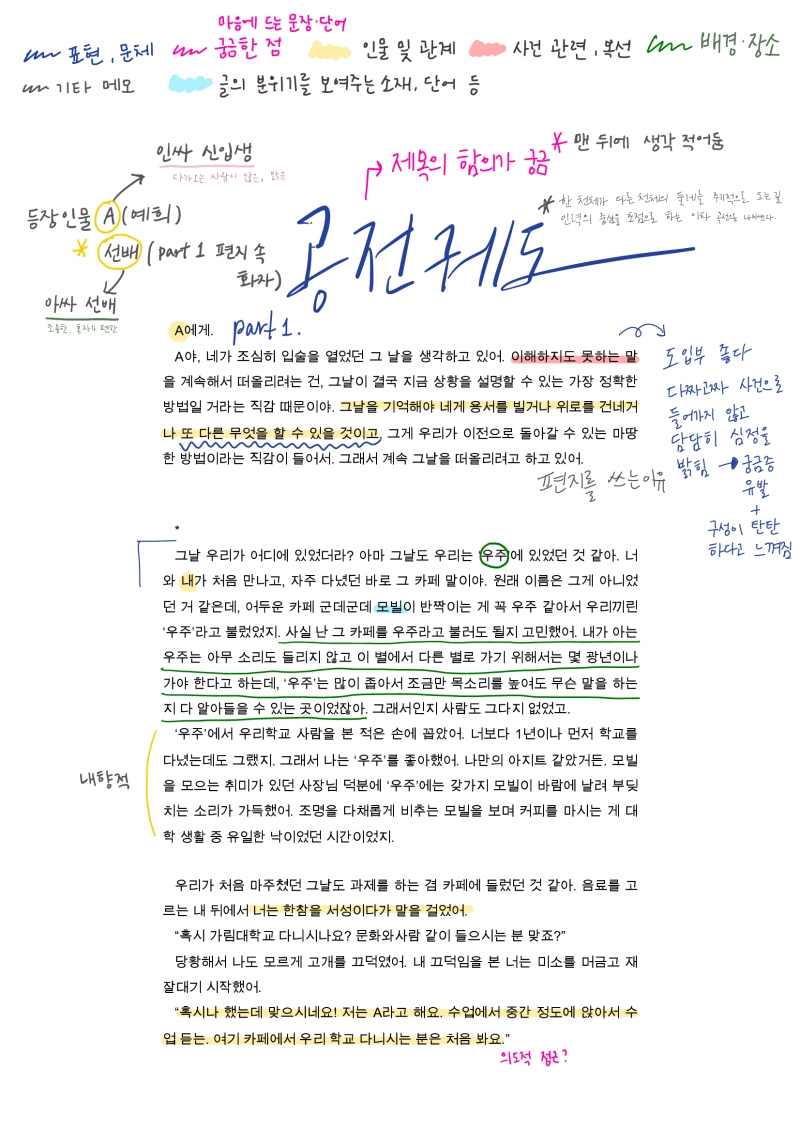 마음에 드는 문장·단어
표현, 문체 궁금한 점 인물 및 관계 사건 관련, 복선 배경·장소
기타 메모 글의 분위기를 보여주는 소재, 단어 등
인싸 신입생
다가오는 사람이 많은, 밝은
제목의 함의가 궁금 * 맨 뒤에 생각 적어둠
등장인물 A (예희)
* 선배 (part 1 편지 속
화자)
아싸 선배
조용한, 혼자가 편한
* 한 천체가 다른 천체의 둘레를 주기적으로 도는 길
인력의 중심을 초점으로 하는 이차 곡선으로 나타낸다.
공전궤도
A에게. part 1.
A야, 네가 조심히 입술을 열었던 그 날을 생각하고 있어. 이해하지도 못하는 말
을 계속해서 떠올리려는 건, 그날이 결국 지금 상황을 설명할 수 있는 가장 정확한
방법일 거라는 직감 때문이야. 그날을 기억해야 네게 용서를 빌거나 위로를 건네거
나 또 다른 무엇을 할 수 있을 것이고, 그게 우리가 이전으로 돌아갈 수 있는 마땅
한 방법이라는 직감이 들어서. 그래서 계속 그날을 떠올리려고 하고 있어.
편지를 쓰는 이유
도입부 좋다
다짜고짜 사건으로
들어가지 않고
담담히 심정을
밝힘 → 궁금증
유발
+
구성이 탄탄
하다고 느껴짐
*
그날 우리가 어디에 있었더라? 아마 그날도 우리는 ‘우주’에 있었던 것 같아. 너
와 내가 처음 만나고, 자주 다녔던 바로 그 카페 말이야. 원래 이름은 그게 아니었
던 거 같은데, 어두운 카페 군데군데 모빌이 반짝이는 게 꼭 우주 같아서 우리끼린
‘우주’라고 불렀었지. 사실 난 그 카페를 우주라고 불러도 될지 고민했어. 내가 아는
우주는 아무 소리도 들리지 않고 이 별에서 다른 별로 가기 위해서는 몇 광년이나
가야 한다고 하는데, ‘우주’는 많이 좁아서 조금만 목소리를 높여도 무슨 말을 하는
지 다 알아들을 수 있는 곳이었잖아. 그래서인지 사람도 그다지 없었고.
‘우주’에서 우리학교 사람을 본 적은 손에 꼽았어. 너보다 1년이나 먼저 학교를
다녔는데도 그랬지. 그래서 나는 ‘우주’를 좋아했어. 나만의 아지트 같았거든. 모빌
을 모으는 취미가 있던 사장님 덕분에 ‘우주’에는 갖가지 모빌이 바람에 날려 부딪
치는 소리가 가득했어. 조명을 다채롭게 비추는 모빌을 보며 커피를 마시는 게 대
학 생활 중 유일한 낙이었던 시간이었지.
내향적
우리가 처음 마주쳤던 그날도 과제를 하는 겸 카페에 들렀던 것 같아. 음료를 고
르는 내 뒤에서 너는 한참을 서성이다가 말을 걸었어.
“혹시 가림대학교 다니시나요? 문화와사람 같이 들으시는 분 맞죠?”
당황해서 나도 모르게 고개를 끄덕였어. 내 끄덕임을 본 너는 미소를 머금고 재
잘대기 시작했어.
“혹시나 했는데 맞으시네요! 저는 A라고 해요. 수업에서 중간 정도에 앉아서 수
업 듣는. 여기 카페에서 우리 학교 다니시는 분은 처음 봐요.”
의도적 접근?